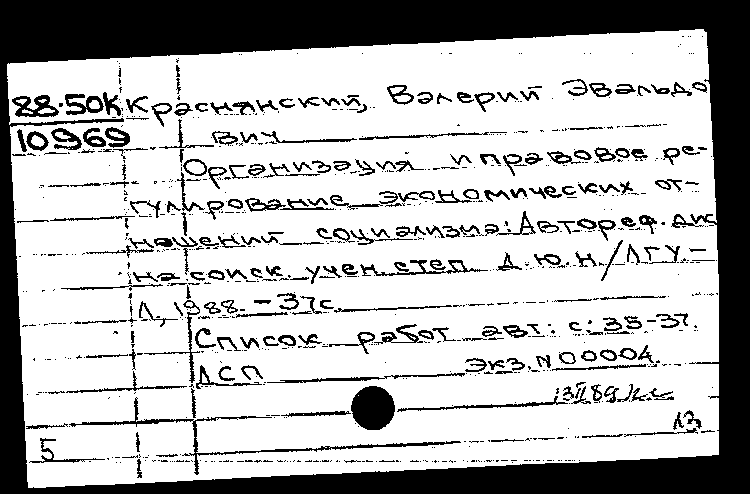 88.50К Краснянский, Валерий Эвальдо
10969 вич
Организация и правовое ре-
гулирование экономических от-
ношений социализма: Автореф. дис
на соиск. учен. степ. д.ю.н./ЛГУ.-
Л., 1988. - 37с.
Список работ авт.: с.: 35-37.
ДСП Экз. N 00004.
13 II 89
5